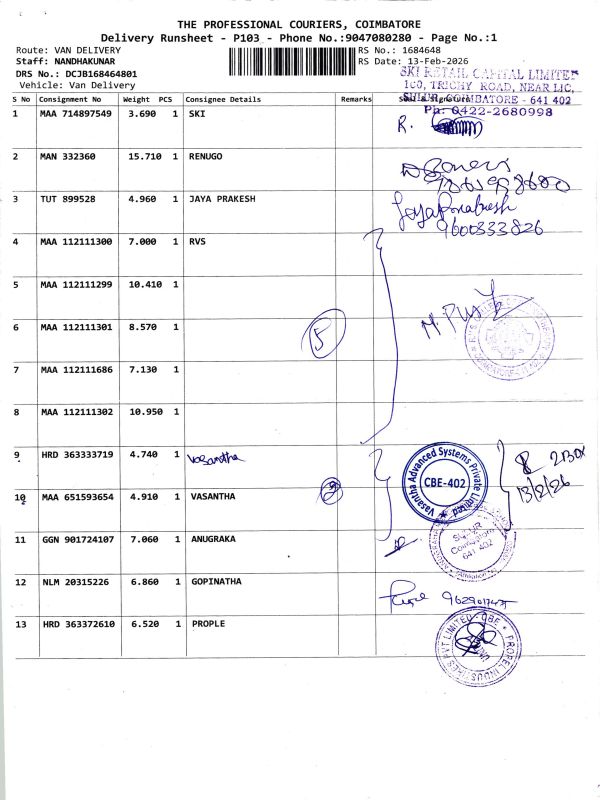 THE PROFESSIONAL COURIERS, COIMBATORE
Delivery Runsheet - P103 - Phone No.:9047080280 - Page No.:1
Route: VAN DELIVERY RS No.: 1684648
Staff: NANDHAKUNAR RS Date: 13-Feb-2026
DRS No.: DCJB168464801
Vehicle: Van Delivery
SKI RETAIL CAPITAL LIMITED
100, TRICHY ROAD, NEAR LIC,
COIMBATORE - 641 402
Ph: 0422-2680998
S No Consignment No Weight PCS Consignee Details Remarks
1 MAA 714897549 3.690 1 SKI R.
2 MAN 332360 15.710 1 RENUGO
3 TUT 899528 4.960 1 JAYA PRAKESH Jayaprakash
9600333826
4 MAA 112111300 7.000 1 RVS
5 MAA 112111299 10.410 1
6 MAA 112111301 8.570 1 5
7 MAA 112111686 7.130 1
8 MAA 112111302 10.950 1
9 HRD 363333719 4.740 1 Vasantha 2 BOX
13/2/26
Vasantha Advanced Systems Private Limited
CBE-402
10 MAA 651593654 4.910 1 VASANTHA 2
11 GGN 901724107 7.060 1 ANUGRAKA
SULUR
Coimbatore
641 402
12 NLM 20315226 6.860 1 GOPINATHA
13 HRD 363372610 6.520 1 PROPLE
PROPEL INDUSTRIES PVT LIMITED - CBE